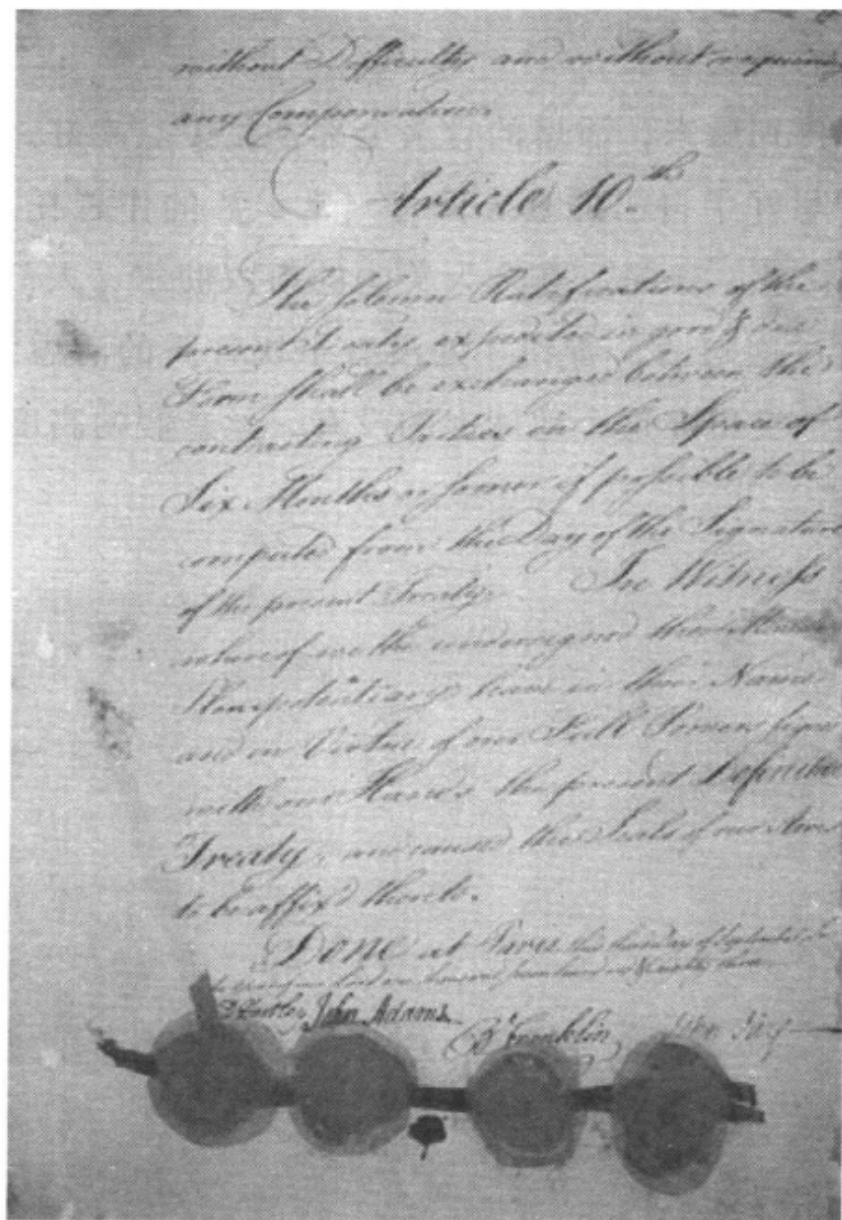 without Difficulty and without requiring
any Compensation.
Article 10.th
The solemn Ratifications of the
present Treaty expedited in good & due
Form shall be exchanged between the
contracting Parties in the Space of
Six Months or sooner if possible to be
computed from the Day of the Signature
of the present Treaty. In Witness
whereof we the undersigned their Ministers
Plenipotentiary have in their Name
and in Virtue of our Full Powers signed
with our Hands the present Definitive
Treaty, and caused the Seals of our Arms
to be affix'd thereto.
Done at Paris, this third day of September, In
the year of our Lord one thousand seven hundred & eighty three
D Hartley John Adams B Franklin John Jay